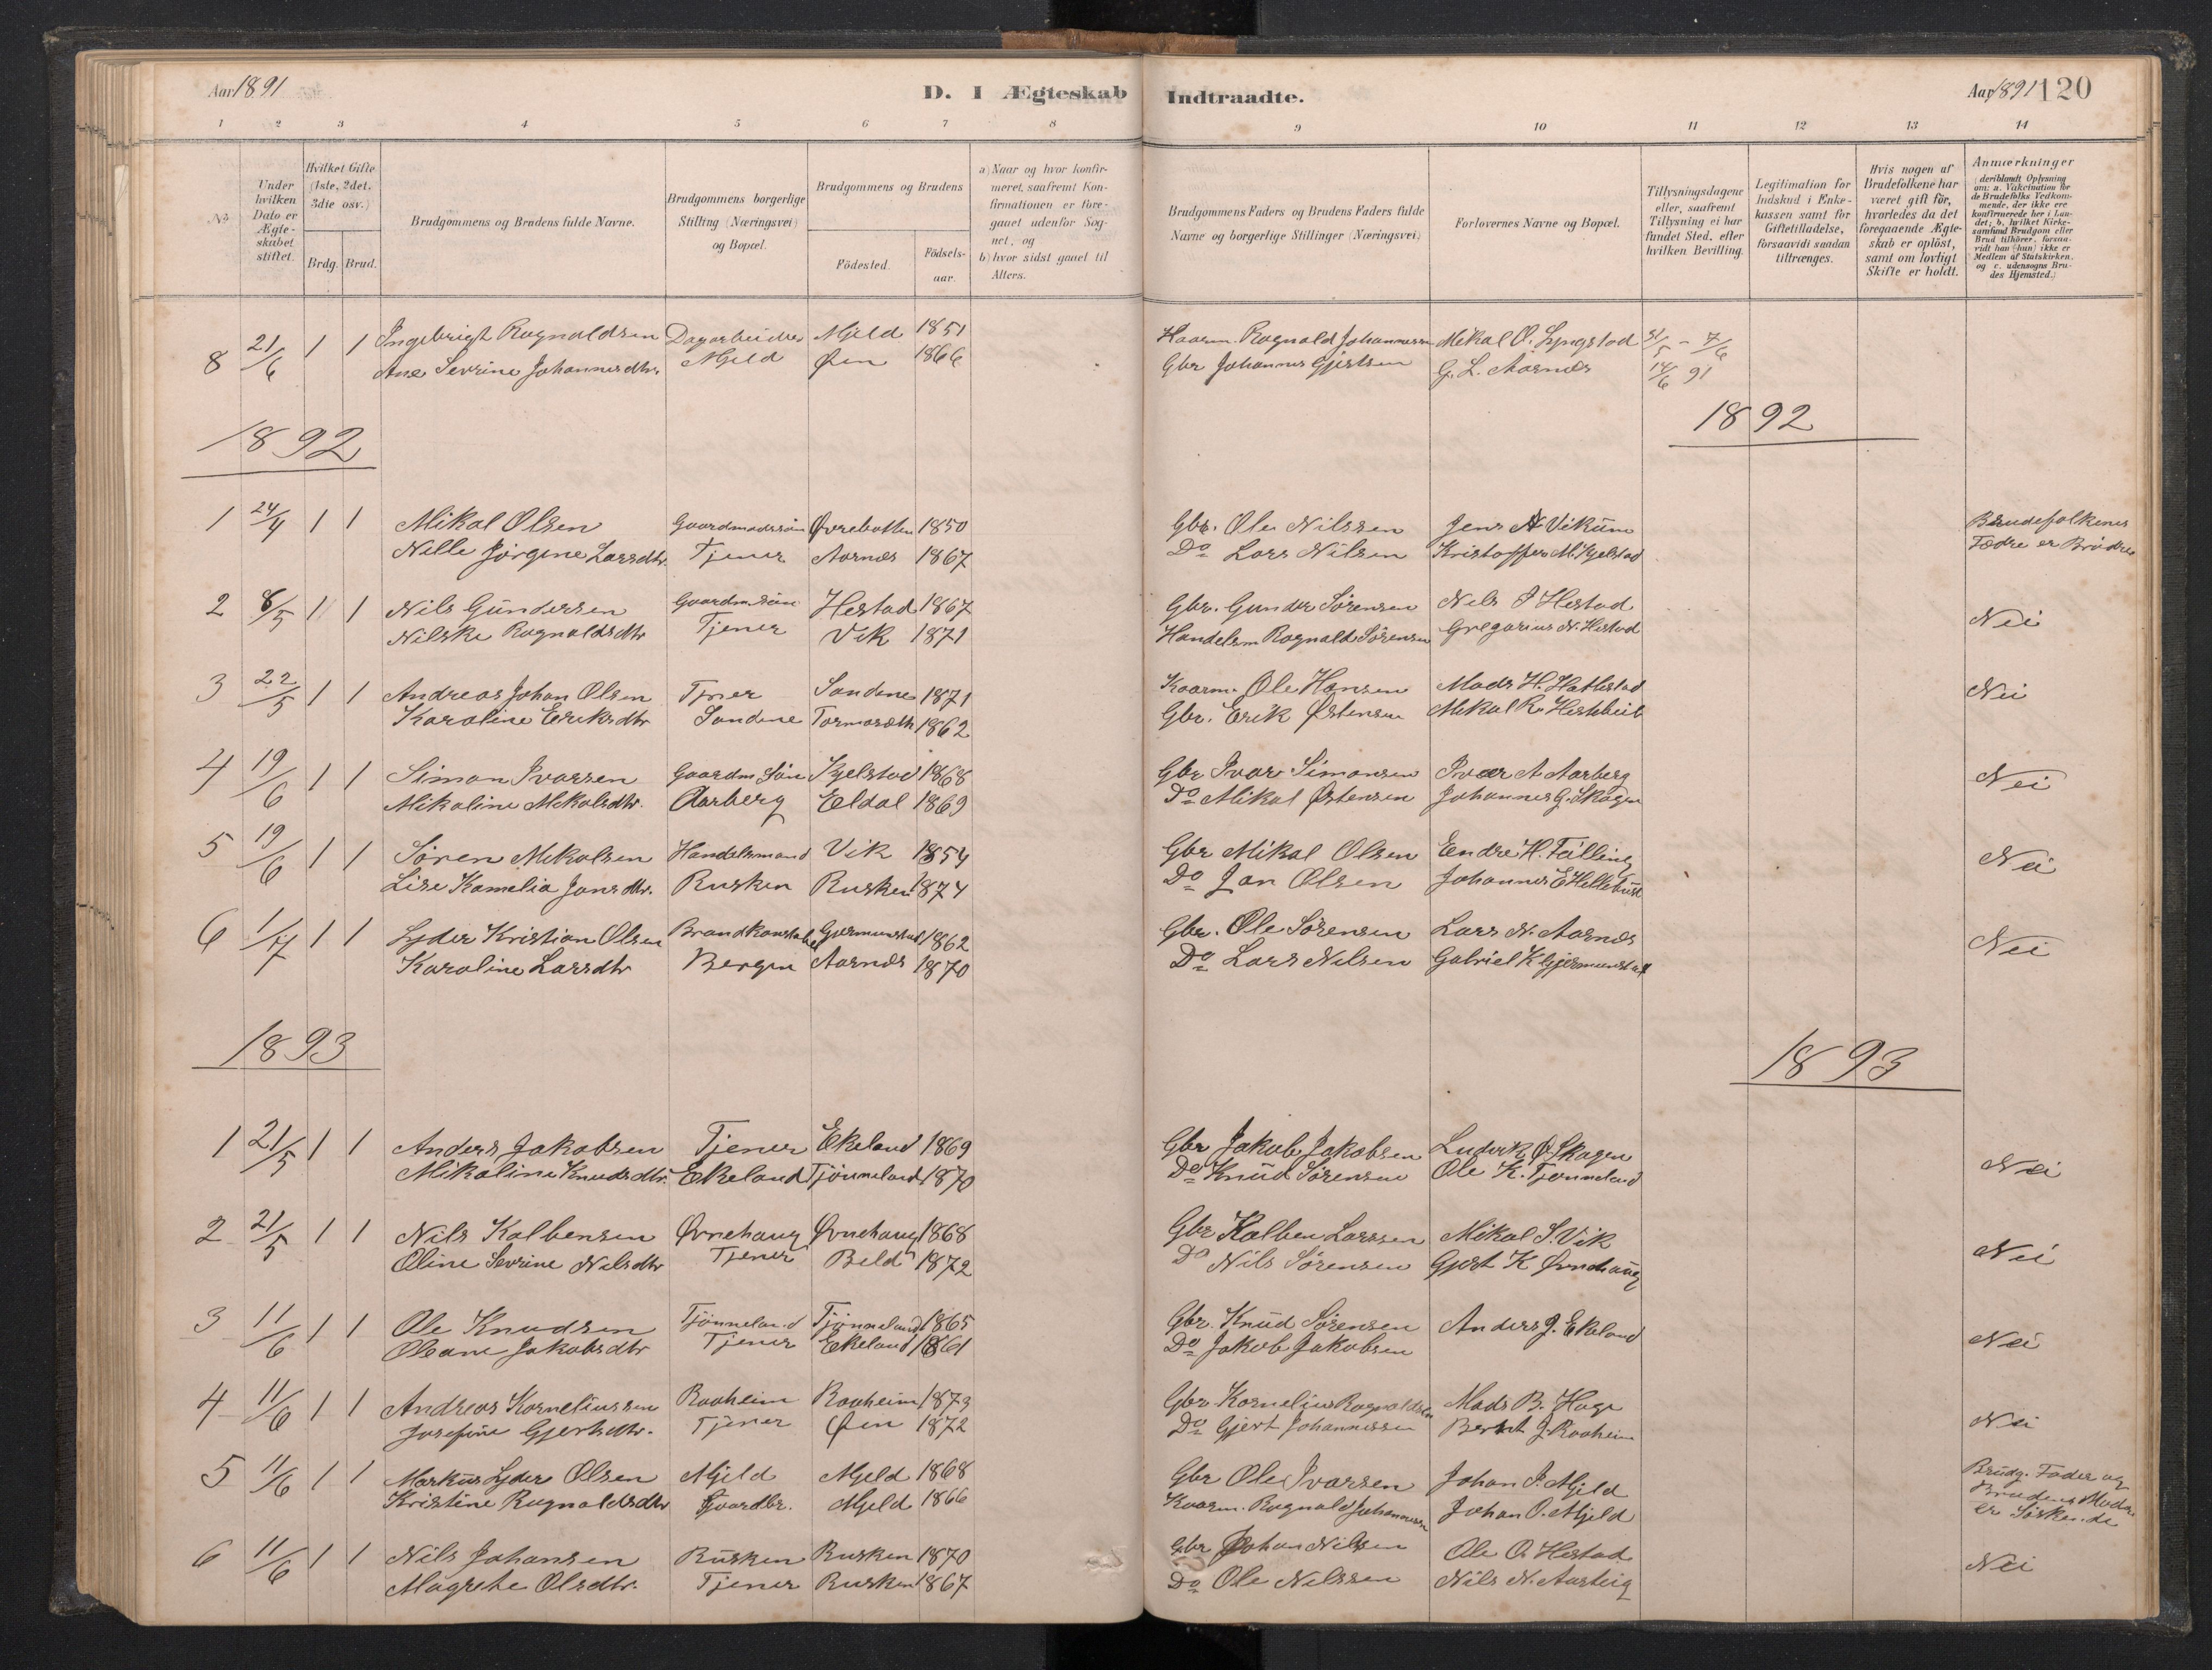 Aar 1891
D. I Ægteskab Indtraadte.
Aar 1891 120
1 2 3 4 5 6 7 8 9 10 11 12 13 14
No
Under hvilken Dato er Ægteskabet stiftet.
Hvilket Gifte (1ste, 2det, 3die osv.)
Brdg. Brud.
Brudgommens og Brudens fulde Navne.
Brudgommens borgerlige Stilling (Næringsvei) og Bopæl.
Brudgommens og Brudens
Födested. Födsels-aar.
a) Naar og hvor konfirmeret, saafremt Konfirmationen er foregaaet udenfor Sognet, og
b) hvor sidst gaaet til Alters.
Brudgommens Faders og Brudens Faders fulde Navne og borgerlige Stillinger (Næringsvei)
Forlovernes Navne og Bopæl.
Tillysningsdagene eller, saafremt Tillysning ei har fundet Sted, efter hvilken Bevilling.
Legitimation for Indskud i Enkekassen samt for Giftetilladelse, forsaavidt saadan tiltrænges.
Hvis nogen af Brudefolkene har været gift för, hvorledes da det foregaaende Ægteskab er oplöst, samt om lovligt Skifte er holdt.
Anmærkninger (deriblandt Oplysning om: a. Vakcination for de Brudefolks Vedkommende, der ikke ere konfirmerede her i Landet; b. hvilket Kirkesamfund Brudgom eller Brud tilhörer, forsaavidt han (hun) ikke er Medlem af Statskirken, og c. udensogns Brudes Hjemsted.)
8 21/6 1 1 Ingebrigt Ragnaldsen Dagarbeider Mjeld 1851 Huusm. Ragnald Johannessen Mikal O. Lyngstad 31/5 - 7/6
Ane Sevrine Johannesdtr. Mjeld Øen 1866 Gbr Johannes Gjertsen G. L. Aarnæs 14/6 91
1892 1892
1 24/4 1 1 Mikal Olsen Gaardmadssön Øvrebotten 1850 Gbr. Ole Nilssen Jens A Vikum Brudefolkenes
Nille Jørgine Larsdtr. Tjener Aarnæs 1867 Do Lars Nilsen Kristoffer M. Kjelstad Fædre er Brödre
2 8/5 1 1 Nils Gundersen Gaardm.sön Hestad 1867 Gbr. Gunder Sörensen Nils J Hestad Nei
Nilske Ragnaldsdtr Tjener Vik 1871 Handelsm Ragnald Sörensen Gregorius N. Hestad
3 22/5 1 1 Andreas Johan Olsen Tjner Sandene 1871 Kaarm. Ole Hansen Mads H. Hatlestad Nei
Karoline Eriksdtr Sandene 1862 Gbr. Erik Østensen Mikal R.
4 19/6 1 1 Simon Ivarsen Gaardm Sön Kjelstad 1868 Gbr Ivar Simonsen Ivar A Aarberg Nei
Mikaline Mikalsdtr. Aarberg Eldal 1869 Do Mikal Østensen Johannes G. Skagen
5 19/6 1 1 Sören Mikalsen Handelsmand Vik 1854 Gbr Mikal Olsen Endre H. Fälling Nei
Lise Kamelia Jonsdtr. Rusken Rusken 1874 Do Jon Olsen Johannes E Hellebust
6 1/7 1 1 Lyder Kristian Olsen Brandkonstabel Gjermunstad 1862 Gbr. Ole Sörensen Lars N. Aarnæs Nei
Karoline Larsdtr Bergen Aarnæs 1870 Do Lars Nilsen Gabriel K Gjermunstad
1893 1893
1 21/5 1 1 Anders Jakobsen Tjener Ekeland 1869 Gbr Jakob Jakobsen Ludvik Ø Skagen Nei
Mikaline Knudsdtr. Ekeland Tjönneland 1870 Do Knud Sörensen Ole K. Tjönneland
2 21/5 1 1 Nils Kolbensen Øvrehaug Øvrehaug 1868 Gbr Kolben Larssen Mikal S. Vik Nei
Oline Sevrine Nilsdtr Tjener Beld 1872 Do Nils Sörensen Gjert K Øvrehaug
3 11/6 1 1 Ole Knudsen Tjönneland Tjönneland 1865 Gbr. Knud Sörensen Anders J. Ekeland Nei
Oleane Jakobsdtr Tjener Ekeland 1861 Do Jakob Jakobsen
4 11/6 1 1 Andreas Korneliussen Raaheim Raaheim 1873 Gbr Kornelius Ragnaldsen Mads B. Hage Nei
Josefine Gjertsdtr. Tjener Øen 1872 Do Gjert Johannessen Bernt J. Raaheim
5 11/6 1 1 Markus Lyder Olsen Mjeld Mjeld 1868 Gbr Ole Ivarsen Johan I. Mjeld Brudg. Fader og
Kristine Ragnaldsdtr Gaardbr. Mjeld 1866 Kaarm. Ragnald Johannessen Johan O. Mjeld Brudens Moder
er Söskende
6 11/6 1 1 Nils Johansen Rusken Rusken 1870 Gbr Johan Nilsen Ole O. Hestad Nei
Magrete Olsdtr. Tjener Rusken 1867 Do Ole Nilssen Nils N.